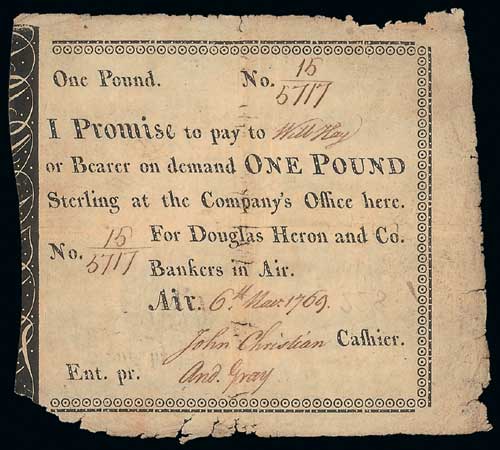 One Pound. No. 15/5717
I Promise to pay to Will Hay
or Bearer on demand ONE POUND
Sterling at the Company's Office here.
No. 15/5717 For Douglas Heron and Co.
Bankers in Air.
Air. 6th Nov: 1769.
John Christian Cashier.
Ent. pr. And. Gray